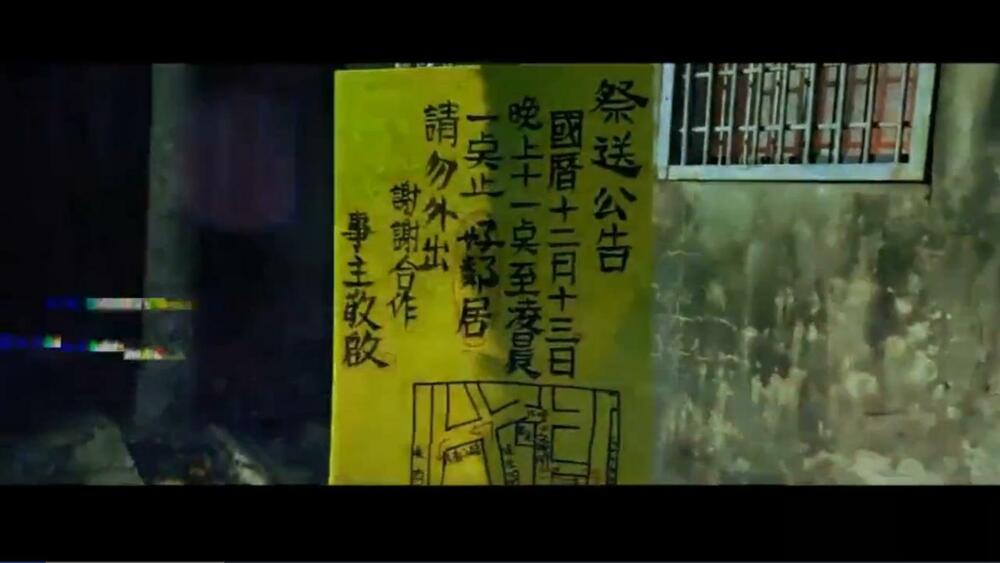 祭送公告
國曆十二月十三日
晚上十一点至凌晨
一点止 好鄰居
請勿外出
謝謝合作
事主敬啟